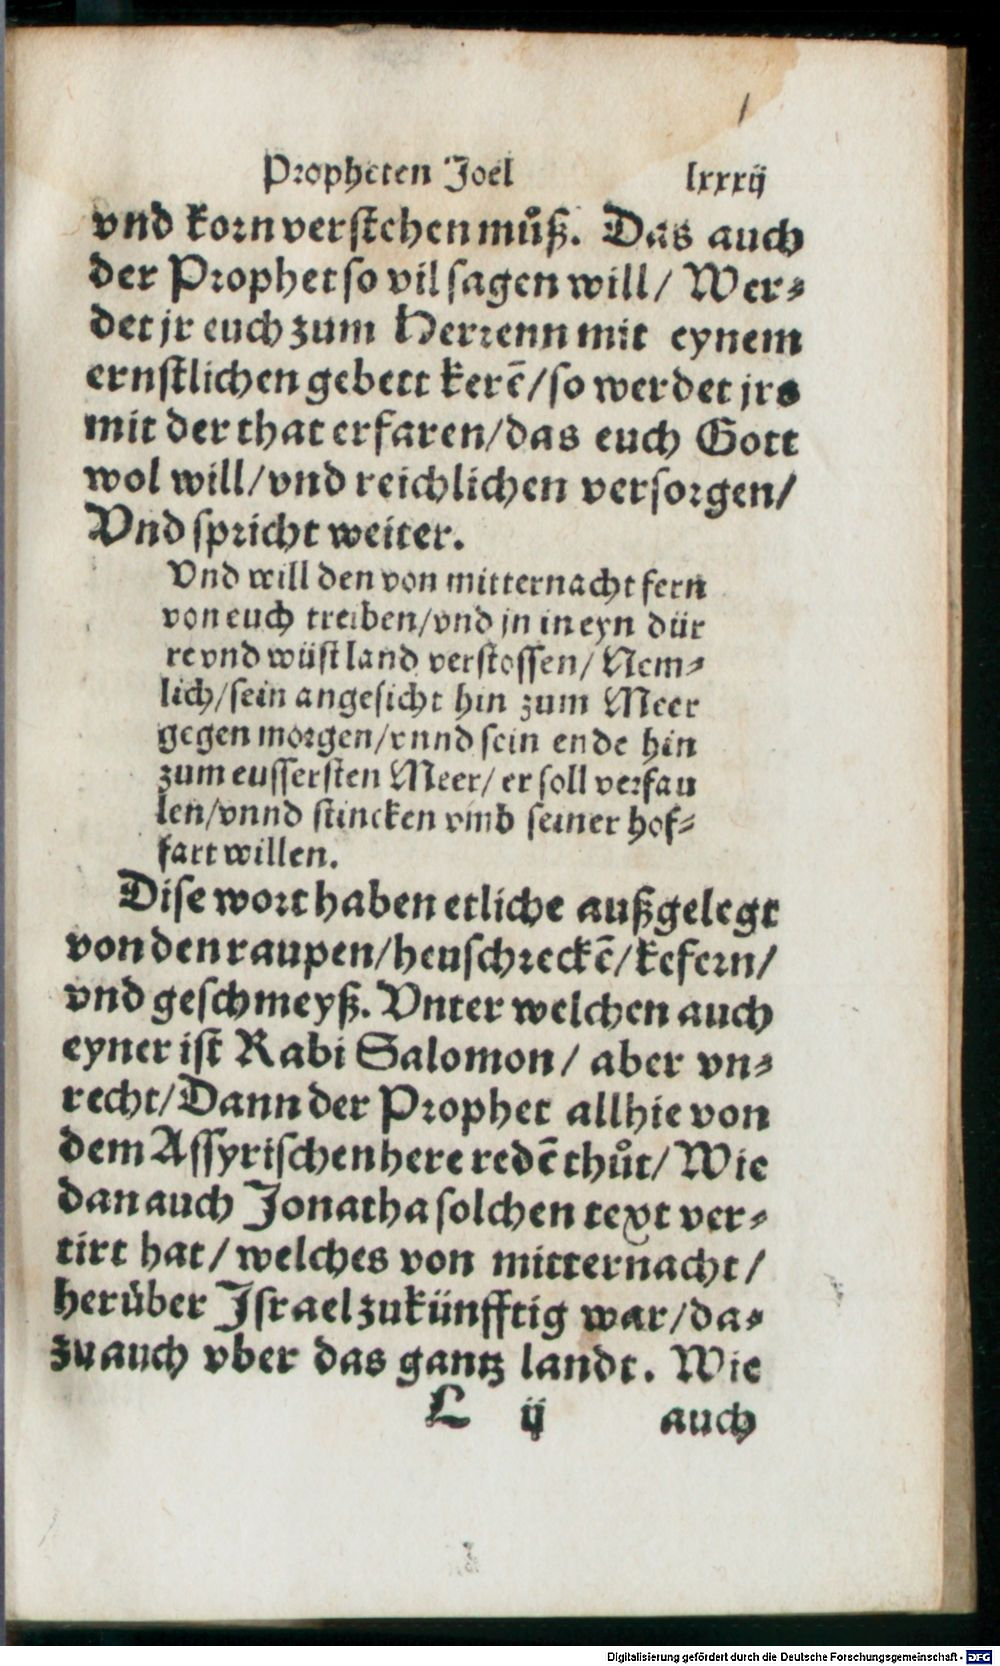 Propheten Joel lxxxij
vnd korn verstehen můß. Das auch
der Prophet so vil sagen will/ Wer⸗
det jr euch zum Herrenn mit eynem
ernstlichen gebett kerē/ so werdet jrs
mit der that erfaren/ das euch Gott
wol will/ vnd reichlichen versorgen/
Vnd spricht weiter.
Vnd will den von mitternacht fern
von euch treiben/ vnd jn in eyn dür
re vnd wüst land verstossen/ Nem⸗
lich/ sein angesicht hin zum Meer
gegen morgen/ vnnd sein ende hin
zum eussersten Meer/ er soll verfau
len/ vnnd stincken vmb seiner hof⸗
fart willen.
Dise wort haben etliche außgelegt
von den raupen/ heuschreckē/ kefern/
vnd geschmeyß. Vnter welchen auch
eyner ist Rabi Salomon/ aber vn⸗
recht/ Dann der Prophet allhie von
dem Assyrischen here redē thůt/ Wie
dan auch Jonatha solchen text ver⸗
tirt hat/ welches von mitternacht/
herüber Israel zukünfftig war/ da⸗
zu auch vber das gantz landt. Wie
L ij auch
Digitalisierung gefördert durch die Deutsche Forschungsgemeinschaft - DFG